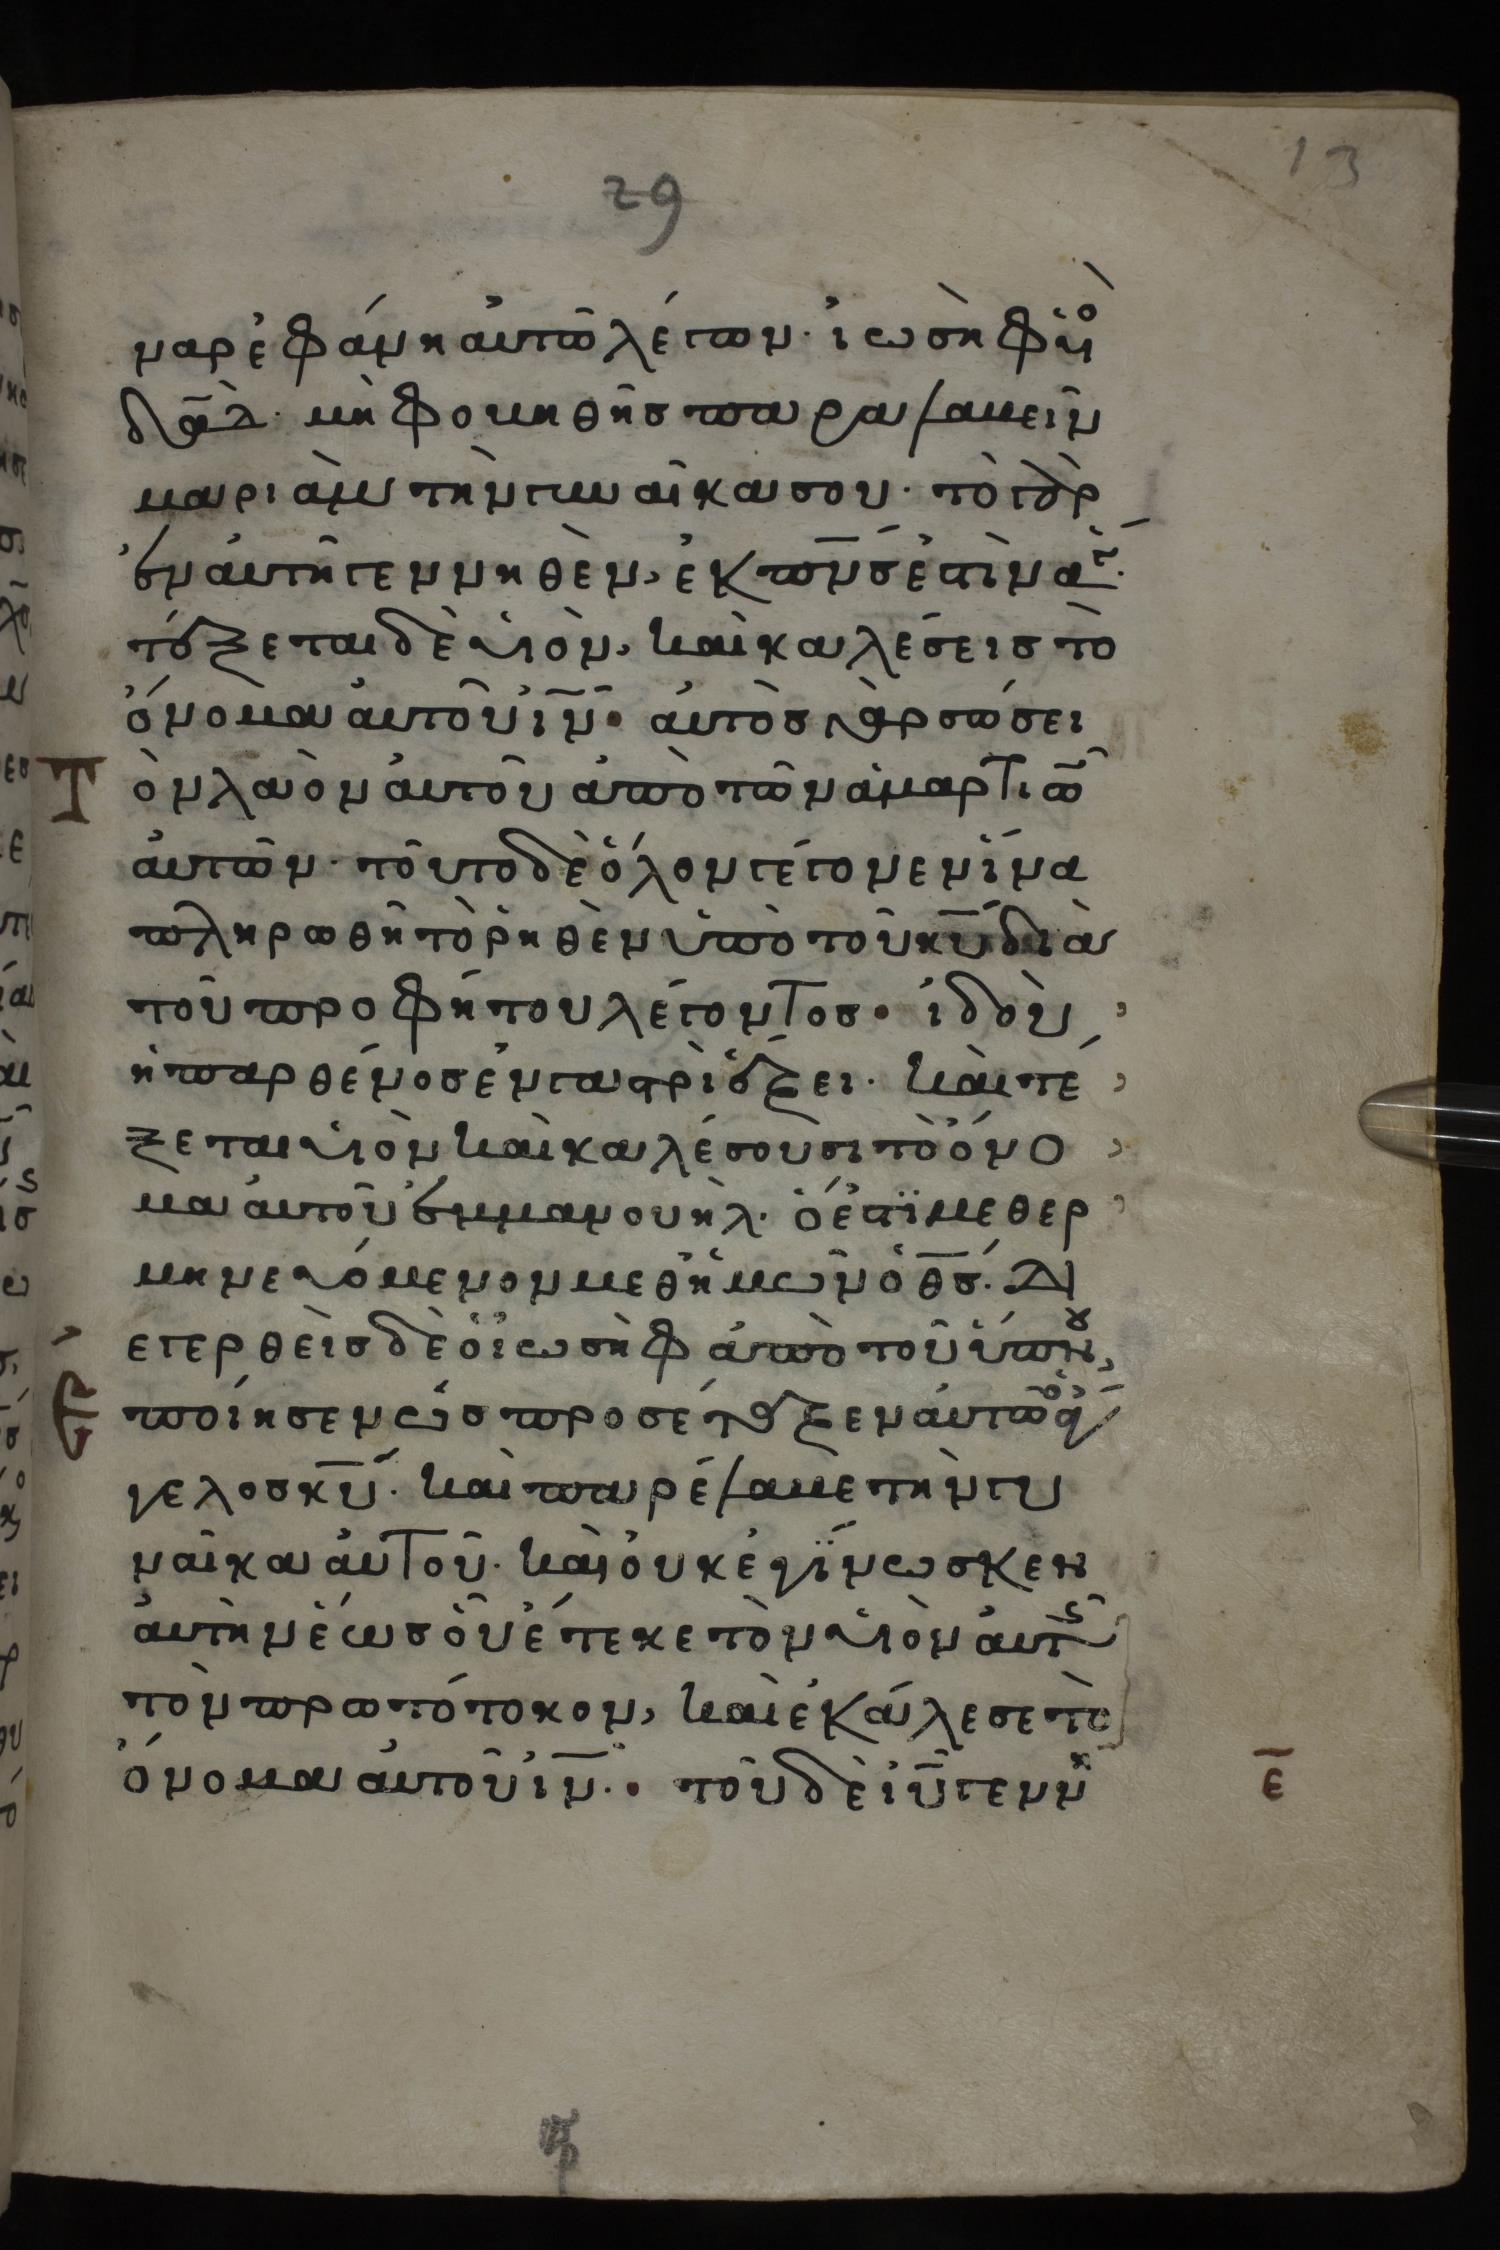 29
13
ναρ ἐφάνη αὐτῶ λέγων· ἰωσὴφ ὑιὸ
δᾱδ· μὴ φοβηθῆσ παραλαβεῖν
μαριὰμ τὴν γυναῖκα σου· τὸ γὰρ
ἐν αὐτῆ γεννηθὲν, ἐκ π̅ν̅σ̅ ἐστὶν ἁγ̀·
τέξεται δὲ υἱὸν, καὶ καλέσεισ τὸ
ὄνομα αὐτοῦ ι̅ν̅· αὐτὸσ γὰρ σώσει
Τὸν λαὸν αὐτοῦ ἀπὸ τῶν ἁμαρτιῶ̅
αὐτῶν· τοῦτο δὲ ὅλον γέγονεν ἵνα
πληρωθῆ τὸ ῥηθὲν ὑπὸ τοῦ κ̅υ̅ διὰ
τοῦ προφήτου λέγοντοσ· ἰδοὺ
ἡ παρθένοσ ἐν γαστρὶ ἕξει· καὶ τέ
ξεται υἱὸν καὶ καλέσουσι τὸ ὄνο
μα αὐτοῦ ἐμμανουήλ· ὅ ἐστϊ μεθερ
μηνευόμενον μεθ ἡμῶν ὁ θ̅σ̅·
Ἐγερθεὶσ δὲ ὁ ἰωσὴφ ἀπὸ τοῦ ὕπνου,
ἐποίησεν ὡσ προσέταξεν αὐτῶ ὁ ἄγ
γελοσ κ̅υ̅· καὶ παρέλαβε τὴν γυ
ναῖκα αὐτοῦ· καὶ οὐκ ἐγϊνωσκεν
αὐτὴν ἕωσ οὗ ἔτεκε τὸν υἱὸν αὐτῆς
τὸν πρωτότοκον, καὶ ἐκάλεσε τὸ
ὄνομα αὐτοῦ ι̅ν̅·· τοῦ δὲ ι̅υ̅ γενν^η
ε̅